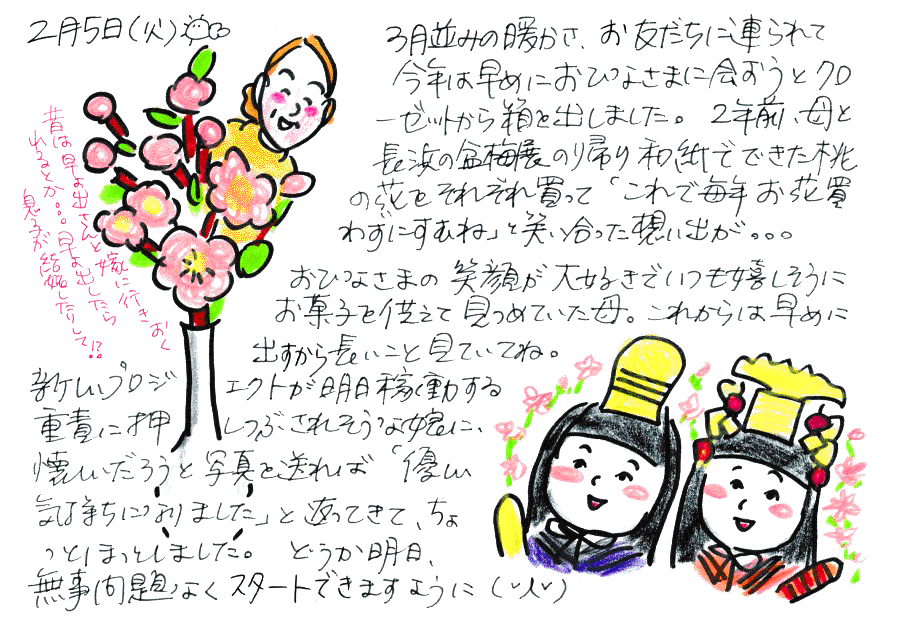 2月5日(火)
3月並みの暖かさ、お友だちに連られて
今年は早めにおひなさまに会おうとクロ
ーゼットから箱を出しました。 2年前、母と
長浜の盆梅展の帰り和紙でできた桃
の花をそれぞれ買って「これで毎年お花買
わずにすむね」と笑い合った想い出が。。。
おひなさまの笑顔が大好きでいつも嬉しそうに
お菓子を供えて見つめていた母。これからは早めに
出すから長いこと見ていてね。
新しいプロジェクトが明日稼働する
重責に押しつぶされそうな嫁に、
懐しいだろうと写真を送れば「優しい
気持ちになりました」と返ってきて、ちょ
っとほっとしました。 どうか明日、
無事問題なくスタートできますように(^人^)
昔は早よ出さんと嫁に行きおく
れるとか。。。早よ出したら
息子が結婚したりして!?